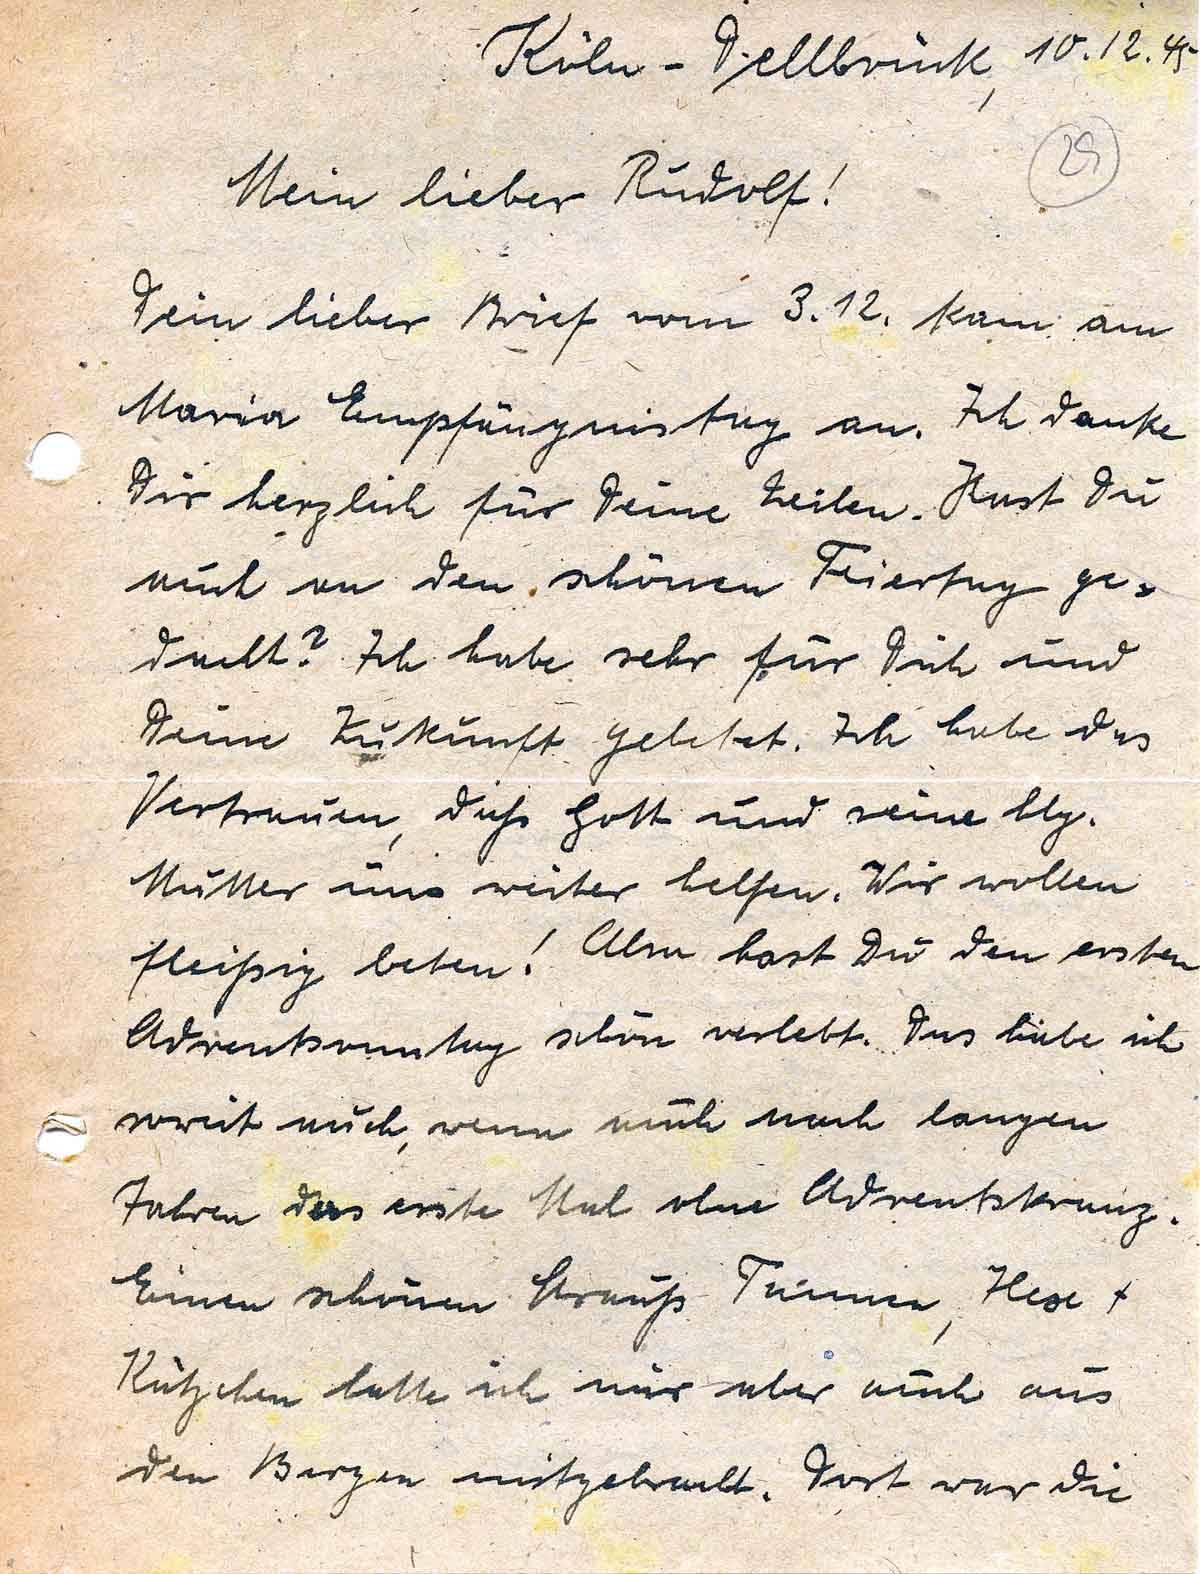 Köln - Dellbrück, 10.12.45
29
Mein lieber Rudolf!
Dein lieber Brief vom 3.12. kam am
Maria Empfängnistag an. Ich danke
Dir herzlich für Deine Zeilen. Hast Du
auch an den schönen Feiertag ge-
dacht? Ich habe sehr für Dich und
Deine Zukunft gebetet. Ich habe das
Vertrauen, daß Gott und seine hlg.
Mutter uns weiter helfen. Wir wollen
fleißig beten! Also hast Du den ersten
Adventsonntag schön verlebt. Das habe ich
soweit auch, wenn auch nach langen
Jahren das erste Mal ohne Adventskranz.
Einen schönen Strauß Tannen, +
Kätzchen hatte ich mir aber auch aus
den Bergen mitgebracht. Dort war die